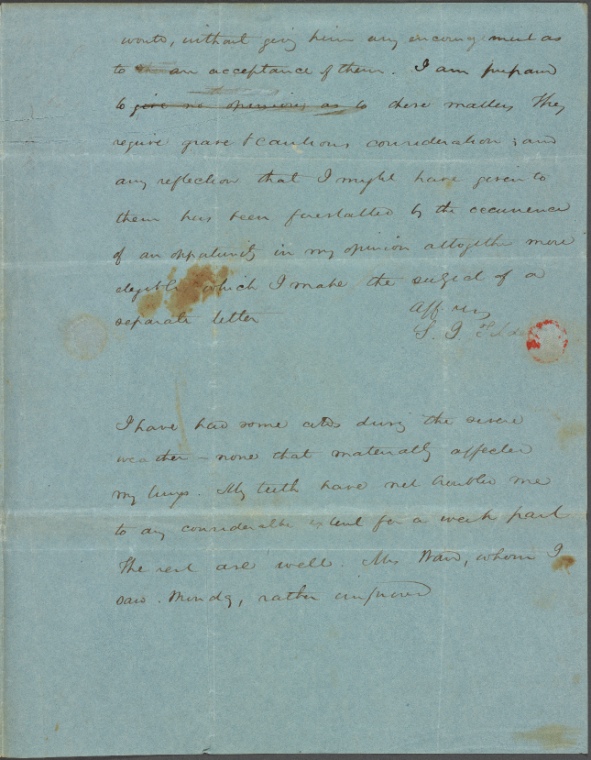 wants, without giving him any encouragement as
to an acceptance of them. I am prepared
to give no opinions as to these matters They
require grave & cautious consideration; and
any reflection that I might have given to
them has been forestalled by the occurrence
of an oppatunity in my opinion altogether more
elegible which I make the subject of a
separate letter
Aff
S. J. Tilden
I have had some colds during the severe
weather – none that materially affected
my lungs. My teeth have not troubled me
to any considerable extent for a week past
The rest are well. Mrs Ward, whom I
saw Monday, rather improved